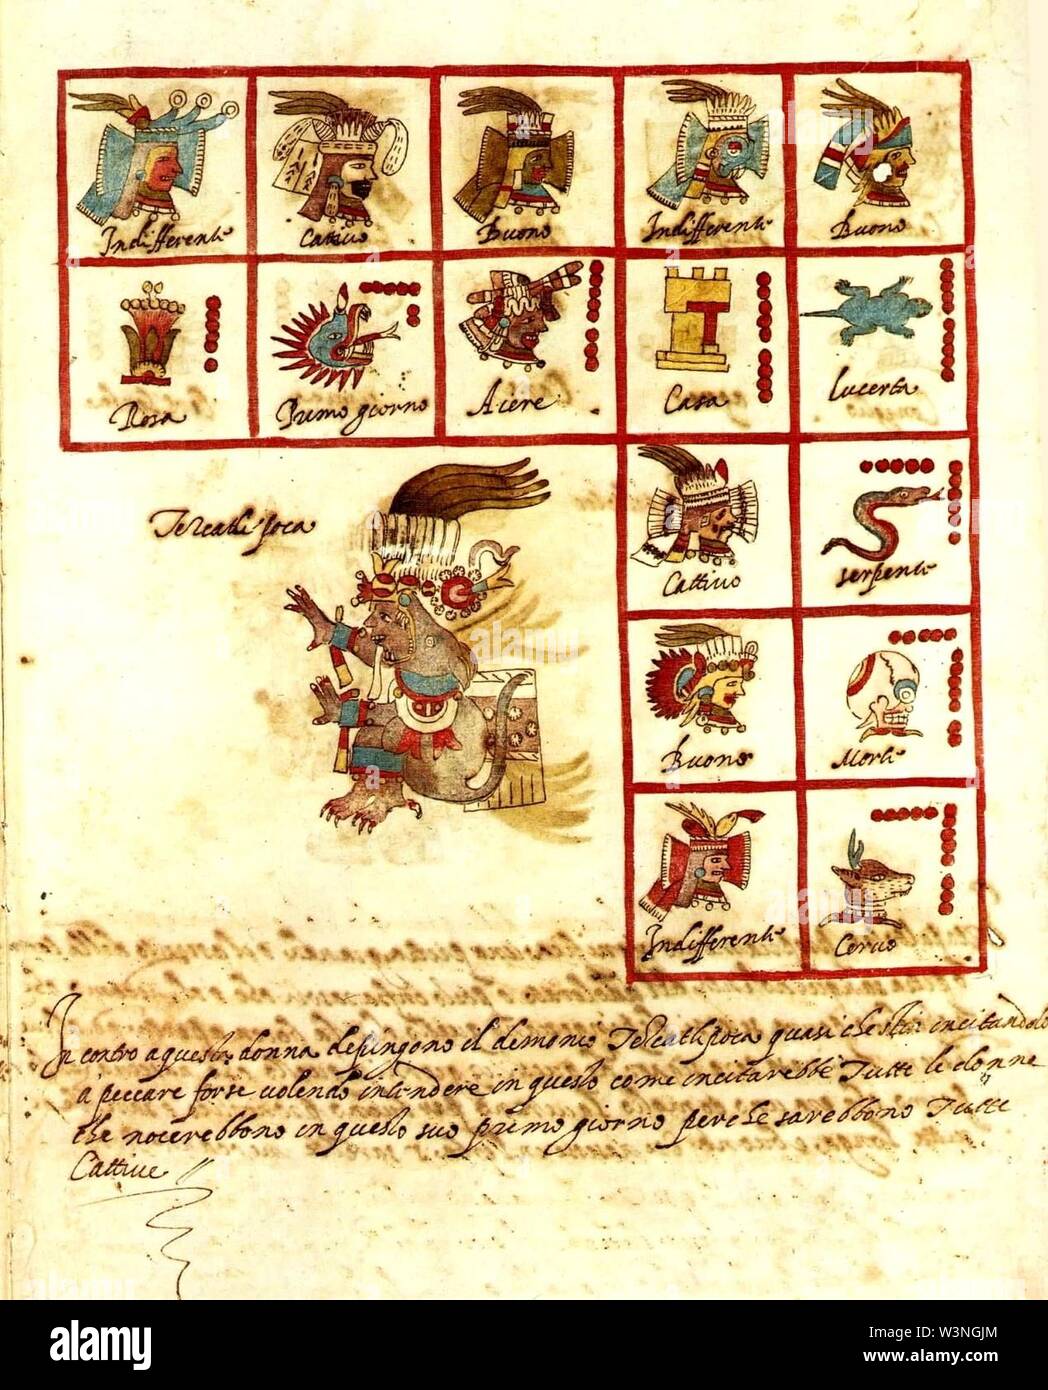 Indifferente Cattivo Buono Indifferente Buono
Rosa Primo giorno Acere Casa Lucerta
Cattivo serpente
Tezcatlipoca
Buono Morte
Indifferente Cervo
In contro a questa donna depingono il demonio Tezcatlipoca quasi che stia incitandolo
a peccare forse volendo intendere in questo come incitarebbe Tutte le donne
che nacerebbono in questo suo primo giorno perche sarebbono Tutte
Cattive
alamy
Image ID: W3NGJM
www.alamy.com